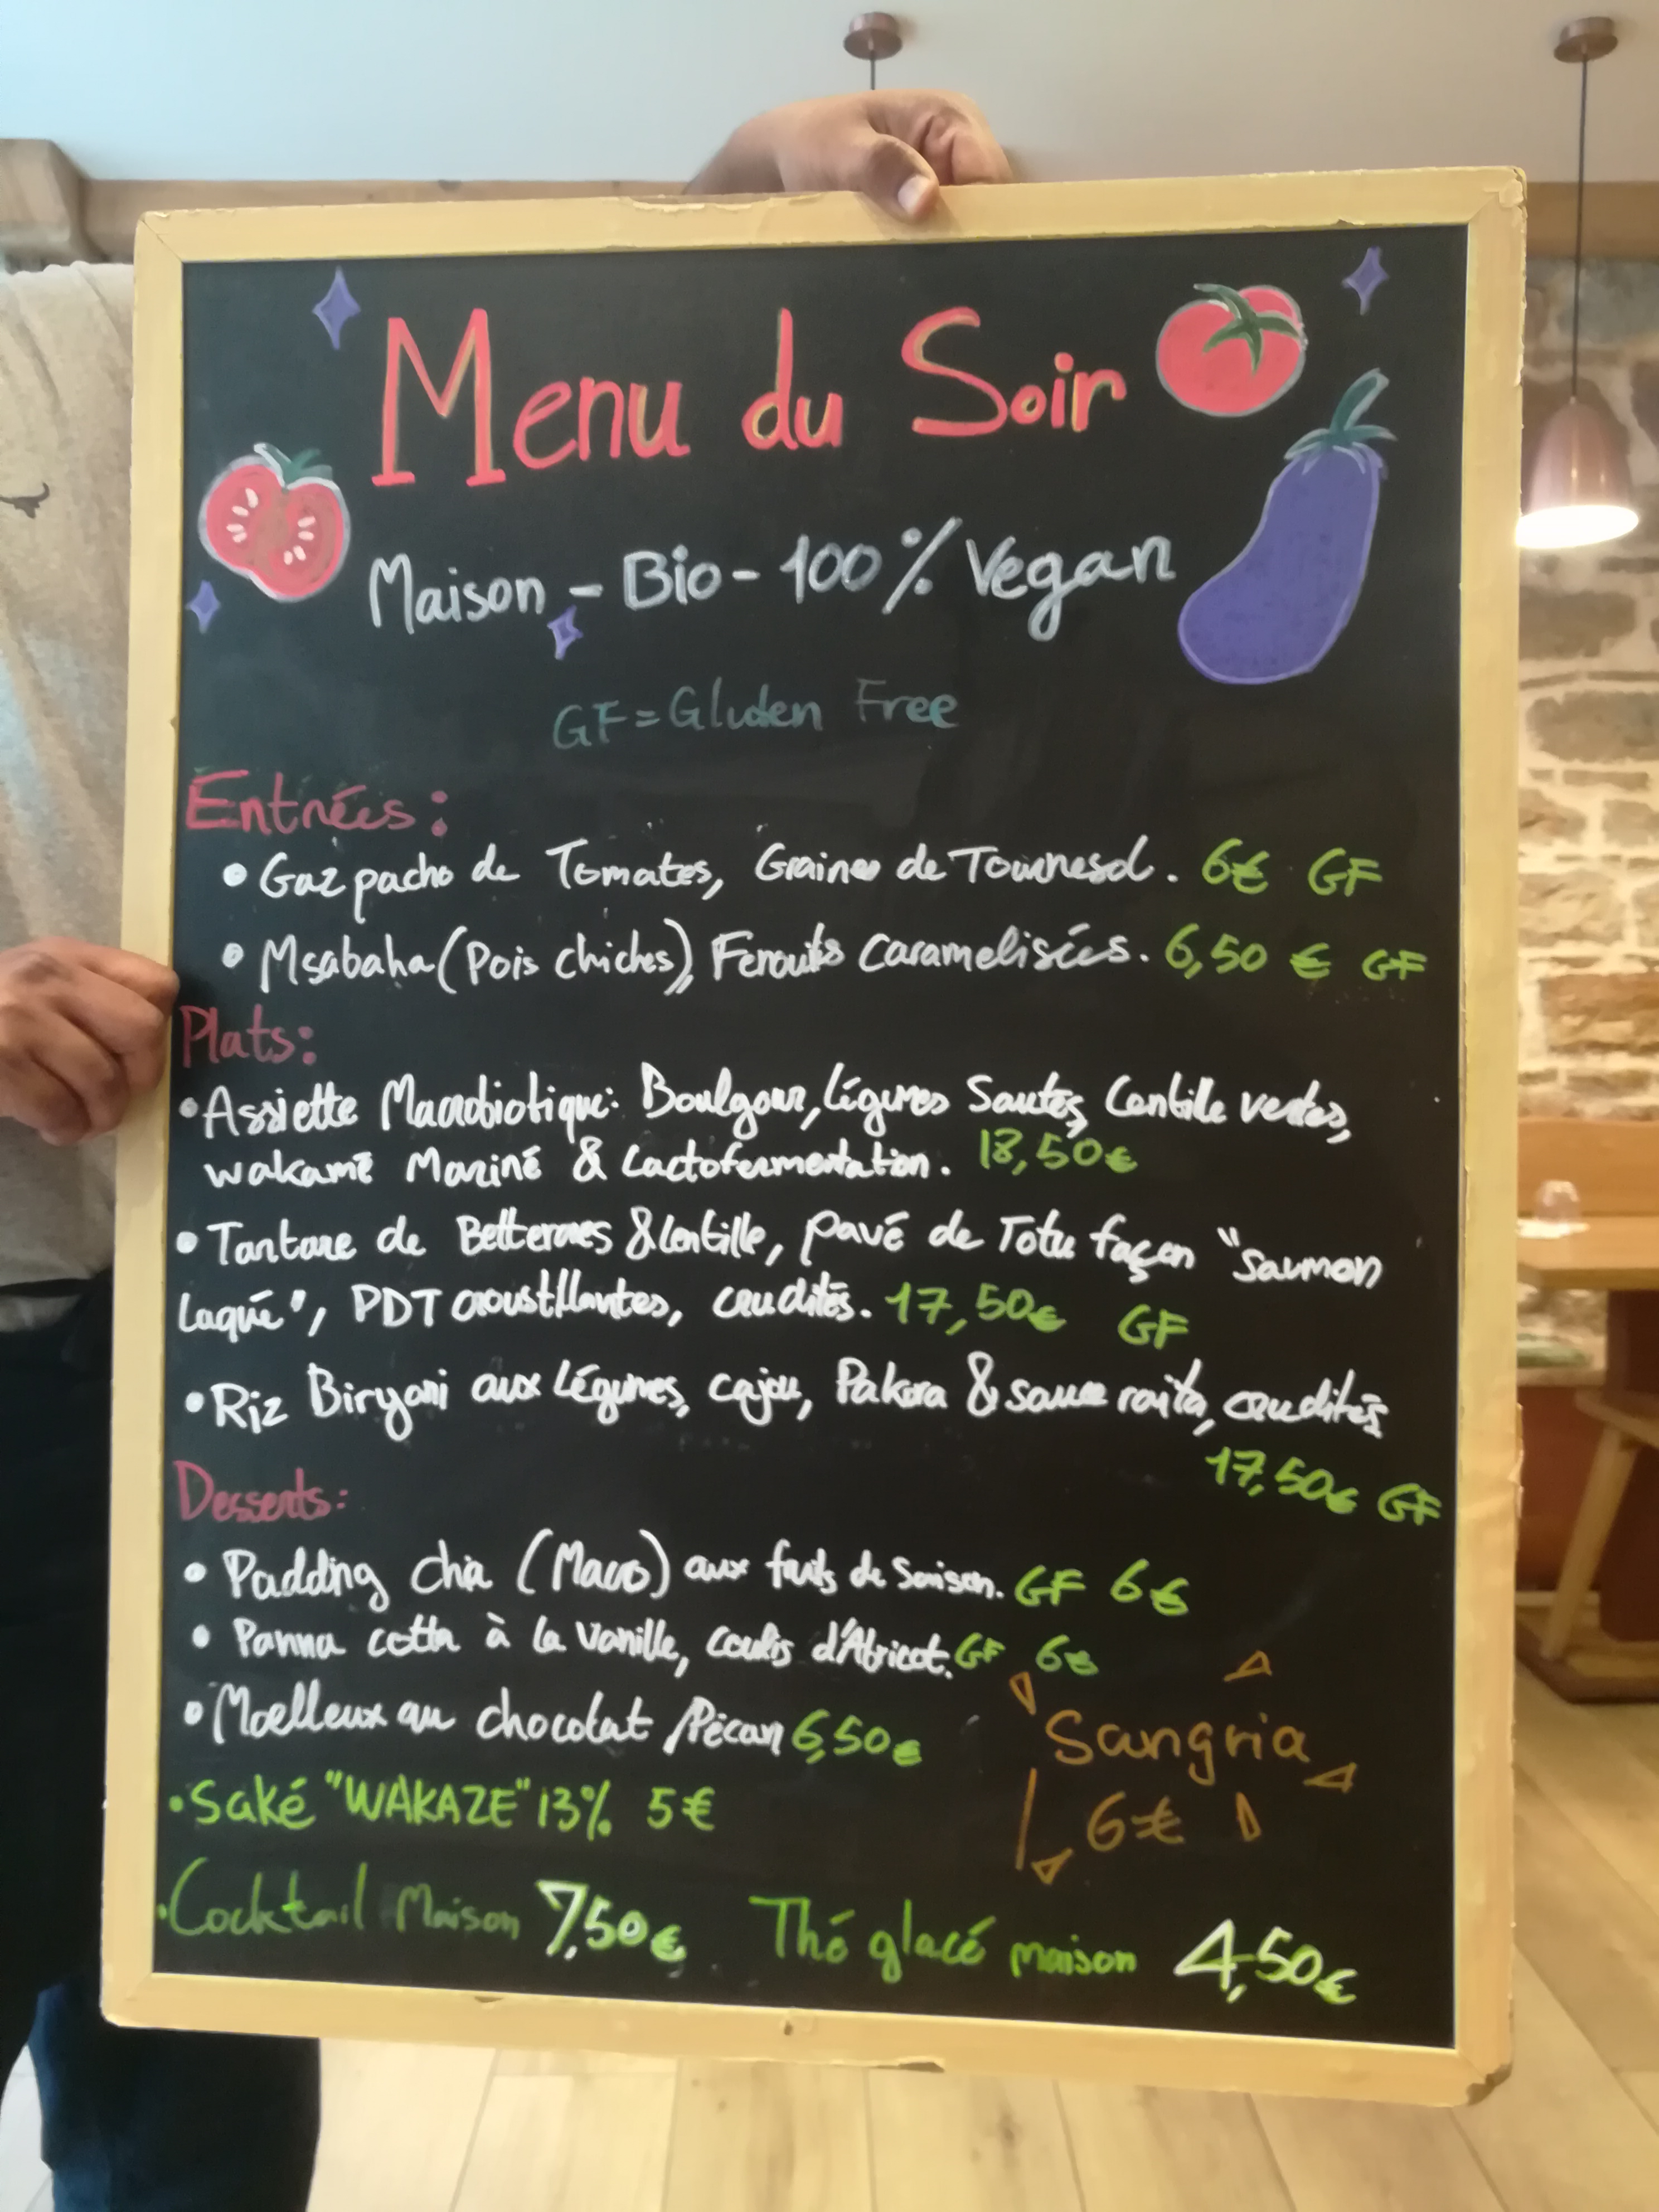 Menu du Soir
Maison - Bio - 100% Vegan
GF = Gluden Free
Entrées :
• Gazpacho de Tomates, Graines de Tournesol. 6€ GF
• Msabaha (Pois chiches), Caramelisées. 6,50 € GF
Plats :
• Assiette Macrobiotique: Boulgour, légumes Sautés, Lentille vertes,
wakamé Mariné & Lactofermentation. 18,50€
• Tartare de Betteraves & lentille, pavé de Tofu façon "saumon
Laqué", PDT croustillantes, crudités. 17,50€ GF
• Riz Biryani aux légumes, cajou, Pakora & sauce raita, crudités
17,50€ GF
Desserts :
• Pudding chia (Maca) aux fruits de Saison. GF 6€
• Panna cotta à la Vanille, coulis d'Abricot. GF 6€
• Moelleux au chocolat /Pécan 6,50€
Sangria
6€
• Saké "WAKAZE" 13% 5€
• Cocktail Maison 7,50€ Thé glacé maison 4,50€